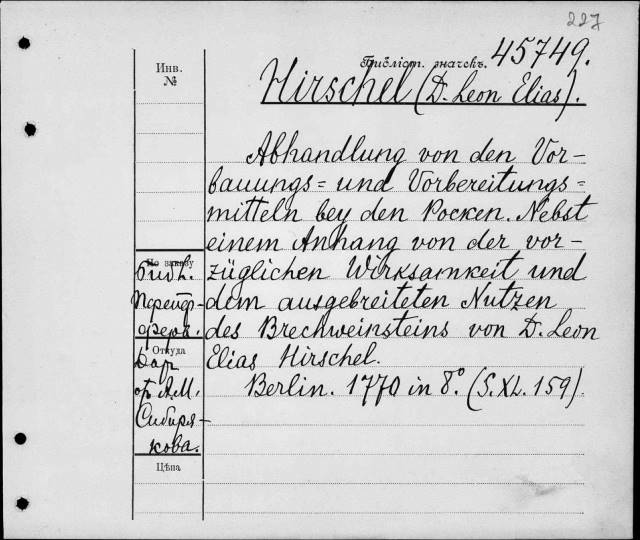 227
Библіот. значекъ. 45749.
Инв.
№
Hirschel (D. Leon Elias).
Abhandlung von den Vor-
bauungs= und Vorbereitungs=
mitteln bey den Pocken. Nebst
einem Anhang von der vor-
züglichen Wirksamkeit und
dem ausgebreiteten Nutzen
des Brechweinsteins von D. Leon
Elias Hirschel.
Berlin. 1770 in 8.° (S. XL. 159).
По заказу
Библ.
Порфир-
Откуда
Дар
от А.М.
Сибиря-
кова.
Цѣна